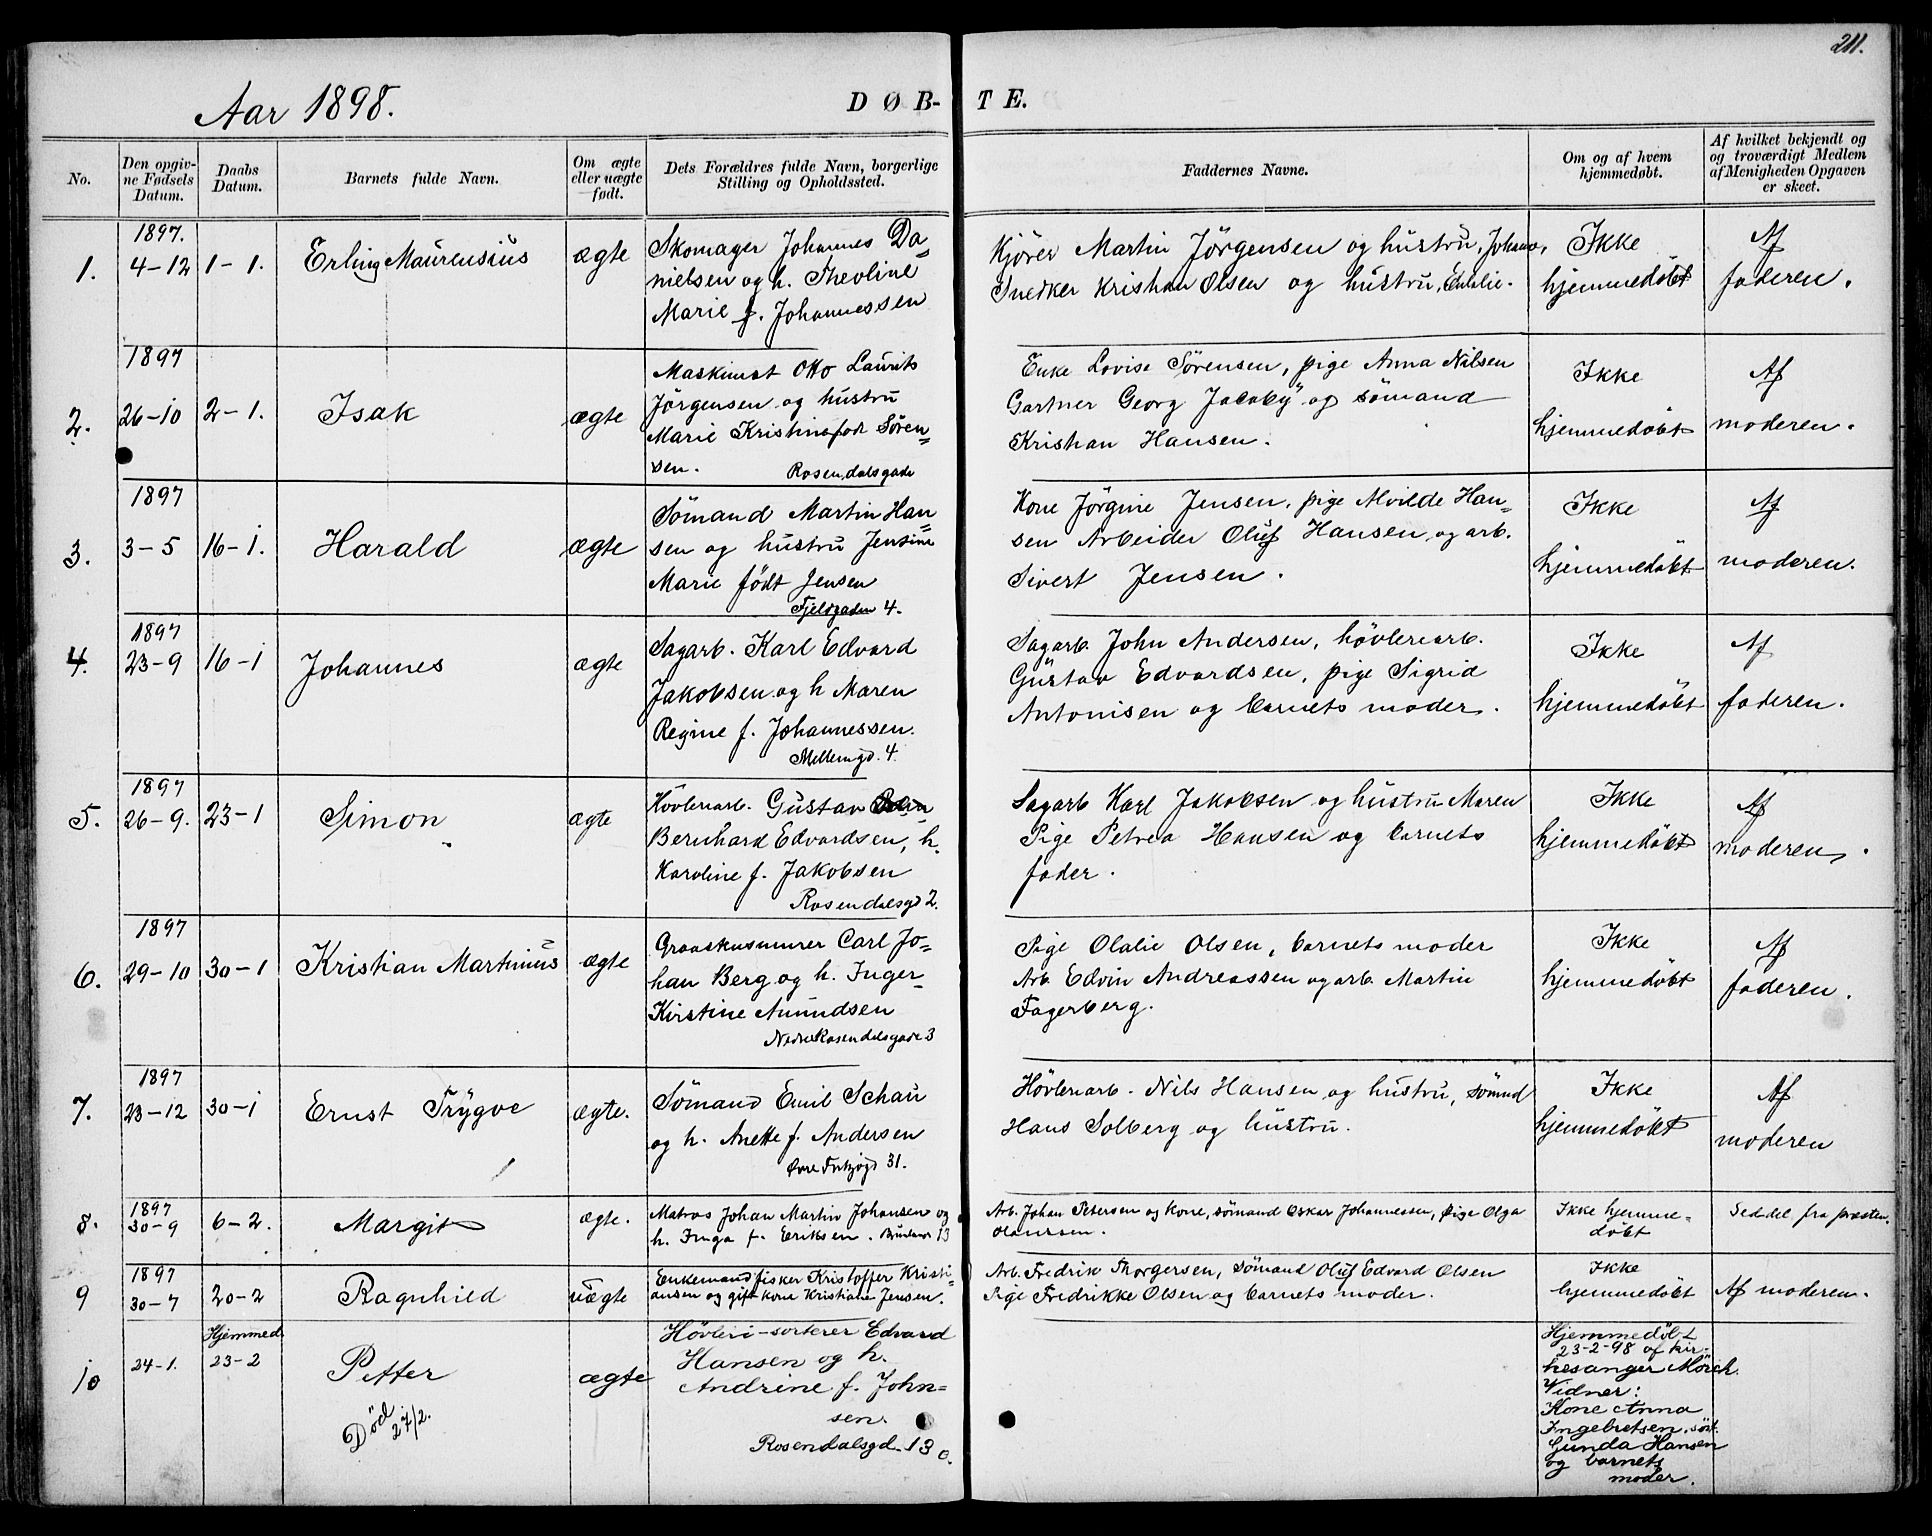 211.
Aar 1898.
DØB-TE.
No.
Den opgiv-
ne Fødsels
Datum.
Daabs
Datum.
Barnets fulde Navn.
Om ægte
eller uægte
født.
Dets Forældres fulde Navn, borgerlige
Stilling og Opholdssted.
Faddernes Navne.
Om og af hvem
hjemmedøbt.
Af hvilket bekjendt og
og troværdigt Medlem
af Menigheden Opgaven
er skeet.
1.
1897.
4-12
1-1.
Erling Maurensius
ægte
Skomager Johannes Da=
nielsen og h. Theoline
Marie f. Johannessen
Kjører Martin Jörgensen og hustru, Johana,
Snedker Kristian Olsen og hustru, Eulalie.
Ikke
hjemmedøbt
Af
faderen.
2.
1897
26-10
2-1.
Isak
ægte
Maskinist Otto Laurits
Jörgensen og hustru
Marie Kristine født Sören=
sen.
Rosendalsgade
Enke Lovise Sörensen, pige Anna Nilsen
Gartner Georg Jacoby og sömand
Kristian Hansen.
Ikke
hjemmedøbt
Af
moderen.
3.
1897
3-5
16-1.
Harald
ægte
Sömand Martin Han=
sen og hustru Jensine
Marie født Jensen
Fjeldgaden 4.
Kone Jörgine Jensen, pige Alvilde Han=
sen Arbeider Oluf Hansen og arb.
Sivert Jensen.
Ikke
hjemmedøbt
Af
moderen.
4.
1897
23-9
16-1
Johannes
ægte
Sagarb. Karl Edvard
Jakobsen og h Maren
Regine f. Johannessen.
Mellemgd. 4.
Sagarb. John Andersen, hövleriarb.
Gustav Edvardsen, pige Sigrid
Antonisen og barnets moder.
Ikke
hjemmedøbt
Af
faderen.
5.
1897
26-9.
23-1
Simon
ægte
Hövleriarb. Gustav
Bernhard Edvardsen, h.
Karoline f. Jakobsen
Rosendalsgd 2.
Sagarb Karl Jakobsen og hustru Maren
Pige Petrea Hansen og barnets
fader.
Ikke
hjemmedøbt
Af
moderen.
6.
1897
29-10
30-1
Kristian Martinius
ægte
Graastensmurer Carl Jo=
han Berg og h. Inger
Kirstine Amundsen
Nedre Rosendalsgade 3
Pige Olalie Olsen, barnets moder
Arb. Edvin Andreassen og arb. Martin
Fagerberg.
Ikke
hjemmedøbt
Af
faderen.
7.
1897
23-12
30-1
Ernst Trygve
ægte.
Sömand Emil Schau
og h. Anette f. Andersen
31.
Hövleriarb. Nils Hansen og hustru, sömnd
Hans Solberg og hustru.
Ikke
hjemmedøbt
Af
moderen
8.
1897
30-9
6-2.
Margit
ægte.
Matros Johan Martin Johansen og
h. Inga f. Eriksen. 13
Arb. Johan Petersen og kone, sömand Oskar Johannessen, pige Olga
Olaussen.
Ikke hjemme-
døbt
Seddel fra presten.
9
1897
30-7
20-2
Ragnhild
uægte
Enkemand fisker Kristoffer Kristi=
ansen og gift kone Kristiane Jensen.
Arb. Fredrik Thorgersen, sömand Oluf Edvard Olsen
Pige Fredrikke Olsen og barnets moder.
Ikke
hjemmedøbt
Af moderen.
10
24-1.
Hjemmed
23-2
Petter
Død
27/2.
ægte
Hövleri-sorterer Edvard
Hansen og h.
Andrine f. John=
sen.
Rosendalsgd. 13 c.
Hjemmedøbt
23-2-98 af kir-
kesanger Mörch.
Vidner:
Kone Anna
Ingebretsen,
Gunda Hansen
og barnets
moder.